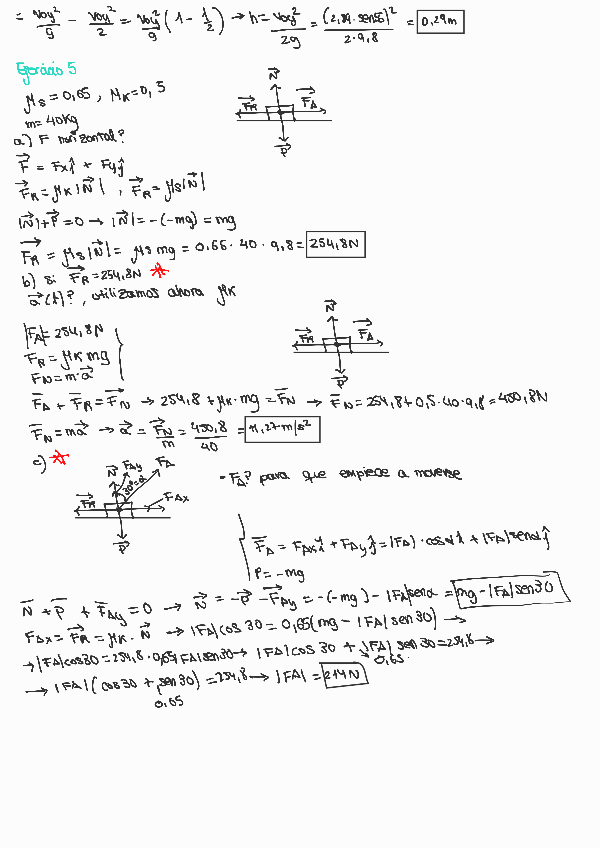 = Voy²/g - Voy²/2 = Voy²/g (1 - 1/2) → h = Voy²/2g = (2,89·sen56)²/2·9,8 = 0,29m
Ejercicio 5
μs = 0,65 , μk = 0,5
m = 40kg
N
FR FA
P
a) F horizontal?
F = Fxî + Fyĵ
FR = μk |N| , FR = μs|N|
|N| + P = 0 → |N| = -(-mg) = mg
FR = μs |N| = μs mg = 0,65 · 40 · 9,8 = 254,8N
b) si FR = 254,8N
a(t)? , utilizamos ahora μk
N
FR FA
P
|FA| = 254,8N
FR = μk mg
FN = m·a
FA + FR = FN → 254,8 + μk·mg = FN → FN = 254,8 + 0,5·40·9,8 = 450,8N
FN = ma → a = FN/m = 450,8/40 = 11,27 m/s²
c)
N FAy FA
30°=α
FR FAx
P
- FA? para que empiece a moverse
FA = FAxî + FAyĵ = |FA|·cosαî + |FA|senαĵ
P = -mg
N + P + FAy = 0 → N = -P - FAy = -(-mg) - |FA|senα = mg - |FA|sen30
FAx = FR = μk · N → |FA|cos 30 = 0,65(mg - |FA| sen30) →
→ |FA|cos30 = 254,8 · 0,65|FA|sen30 → |FA|cos 30 + |FA| sen30 = 254,8 →
0,65
→ |FA| (cos30 + sen30) = 254,8 → |FA| = 214N
0,65